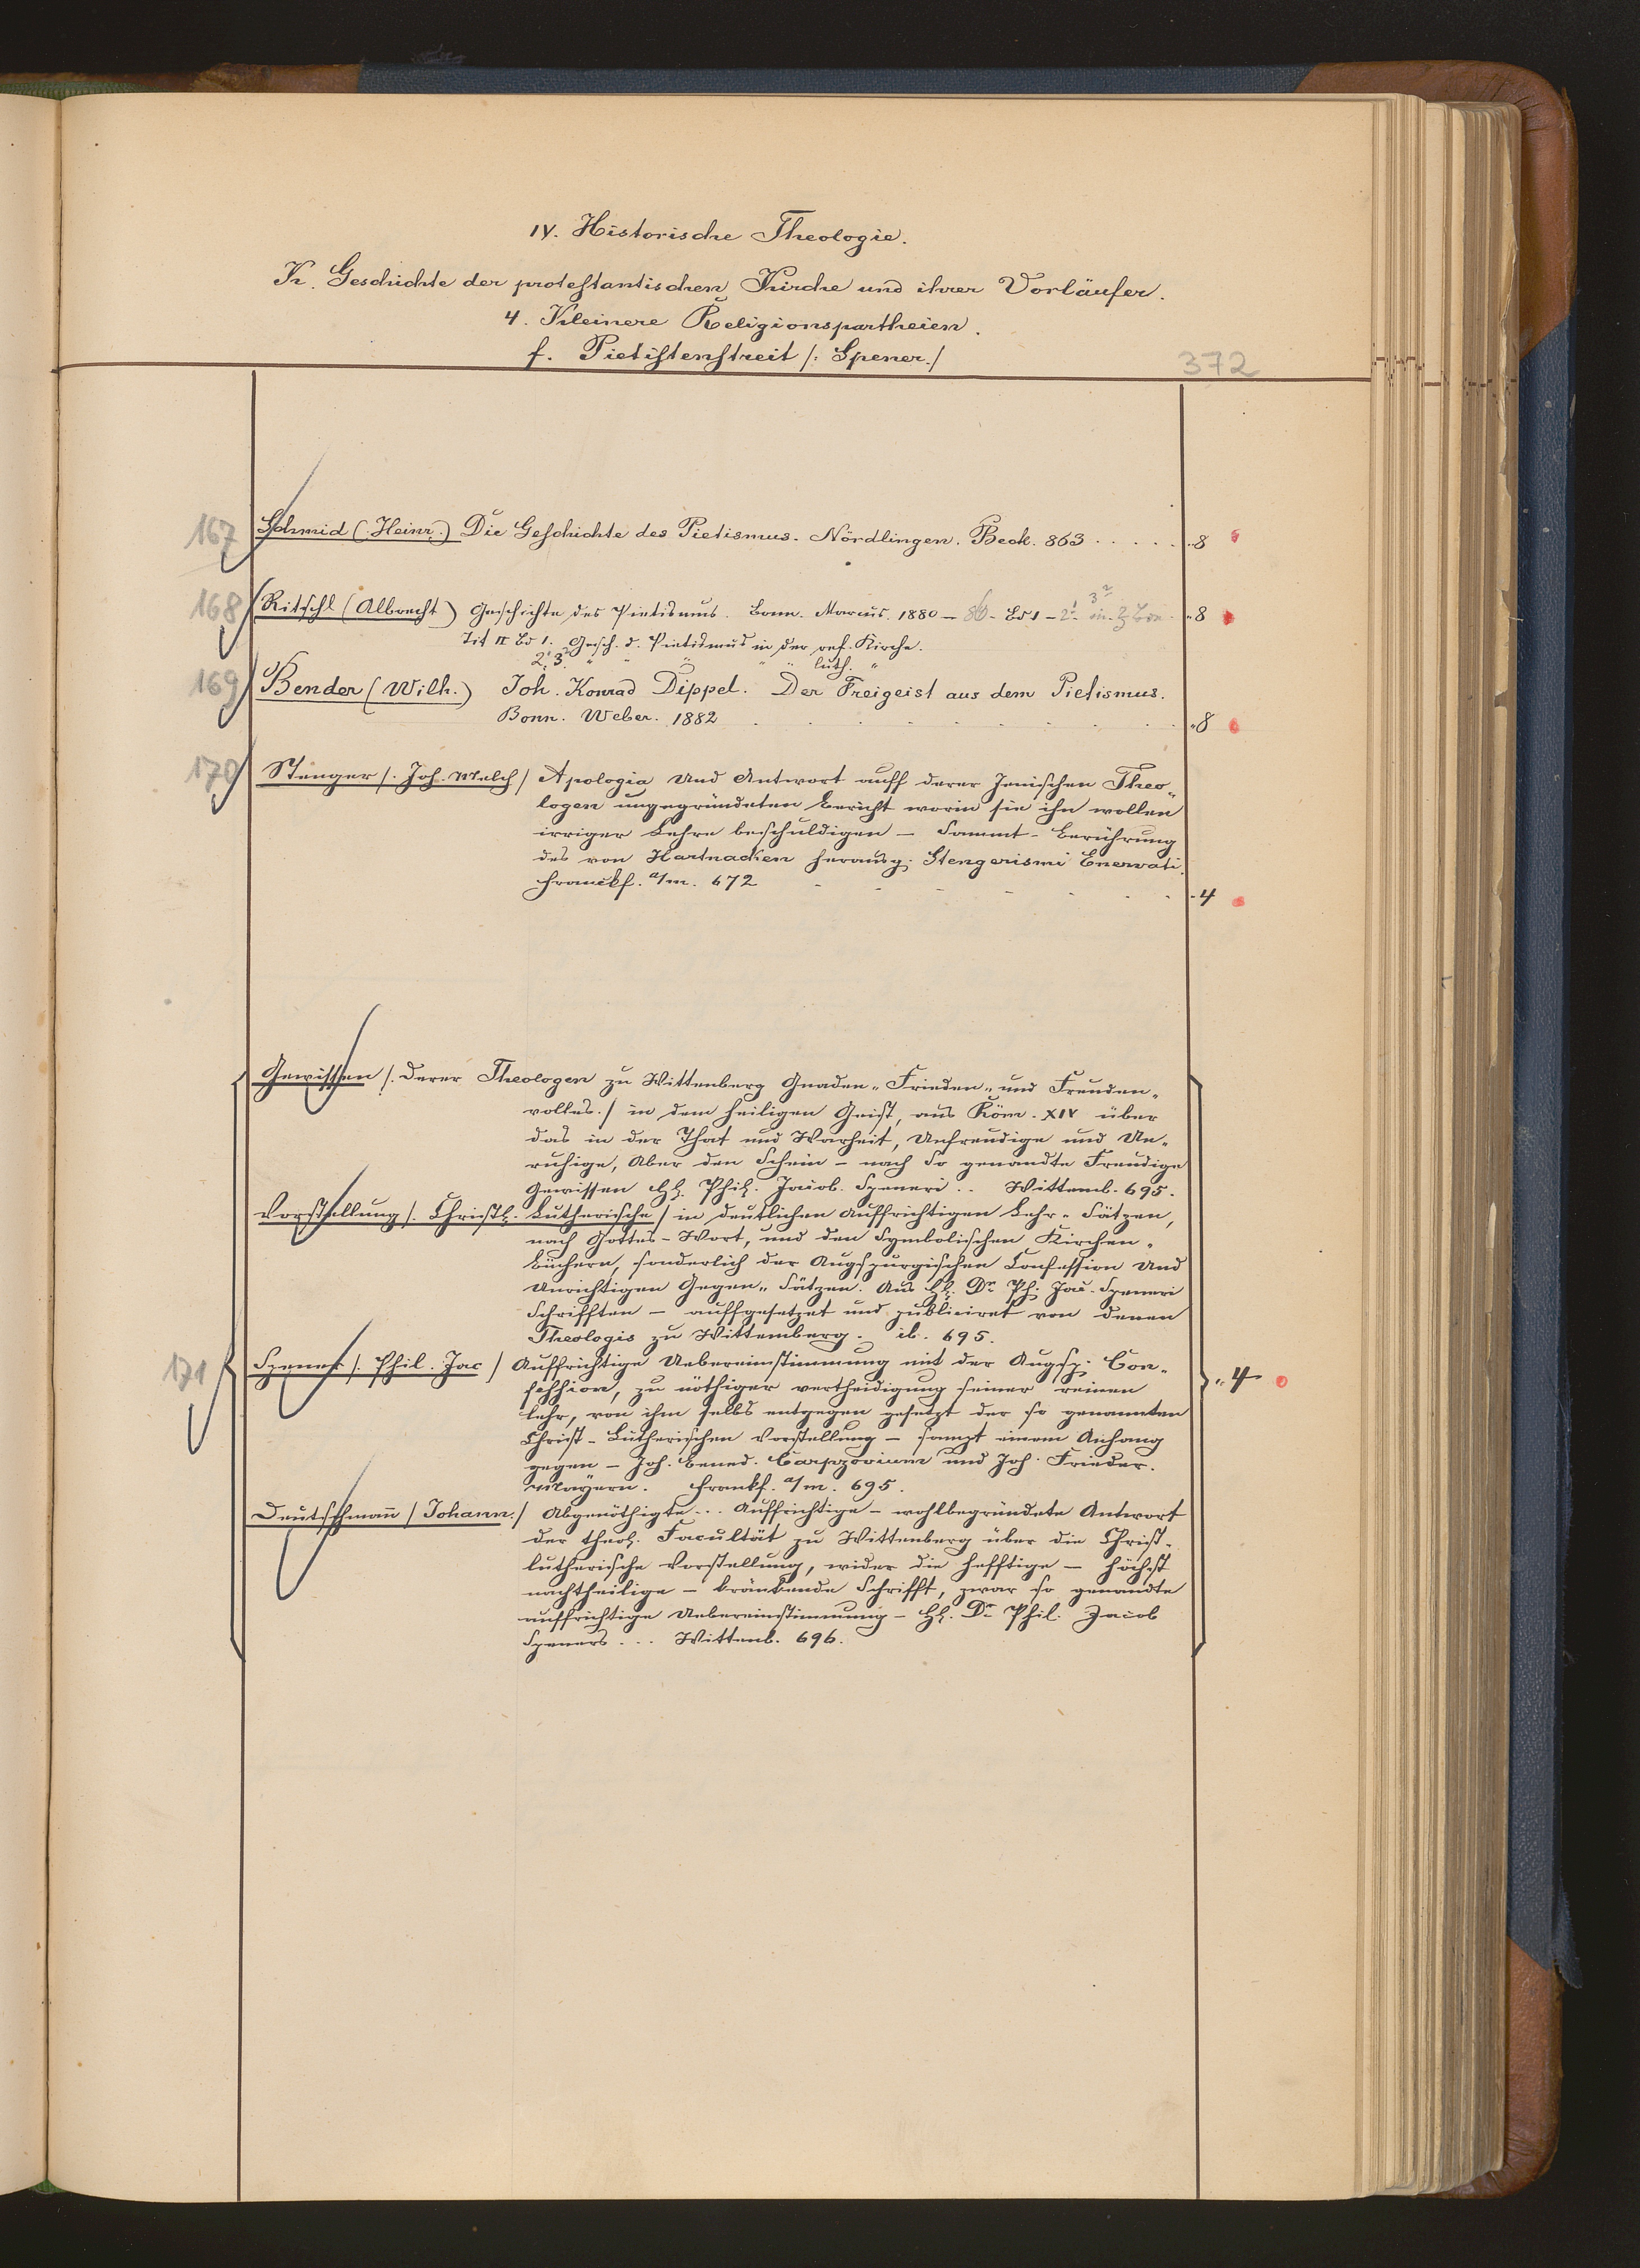 IV. Historische Theologie.
K. Geschichte der protestantischen Kirche und ihrer Vorläufer.
4. Kleinere Religionspartheien.
f. Pietistenstreit /: Spener./
372
167 Schmid (Heinr.) Die Geschichte des Pietismus. Nördlingen. Beck. 863 . . . . . „8
168 Ritschl (Albrecht) Geschichte des Pietismus. Bonn. Marcus. 1880 – 86. Bd 1 – 2.¹ 3² in 3 Bdn. „8
Tit II Bd 1. Gesch. d. Pietismus in der ref. Kirche.
2¹, 3² „ „ „ „ „ luth. „
169 Bender (Wilh.) Joh. Konrad Dippel. Der Freigeist aus dem Pietismus.
Bonn. Weber. 1882 . . . . . . . . „8
170 Stenger /. Joh. Melch / Apologia Und Antwort auff derer Jenischen Theo„
logen ungegründeten Bericht worin sie ihn wollen
irriger Lehre beschuldigen – Sammt – Berührung
des von Hartnacken herausg. Stengerismi Enervati.
Franckf. a/m. 672 - - - - - - -4
Gewissen /. Derer Theologen zu Wittenberg Gnaden„ Frieden„ und Freuden„
volles./ in dem heiligen Geist, aus Röm. XIV über
das in der That und Warheit, Unfreudige und Un„
ruhige, Aber den Schein – nach so genandte Freudige
Gewissen Hh. Phil. Jacob. Speneri .. Wittemb. 695.
Vorstellung /. Christl. Lutherische / in deutlichen Auffrichtigen Lehr„ Sätzen,
nach Gottes – Wort, und den Symbolischen Kirchen„
büchern, sonderlich der Augspurgischen Confession Und
Unrichtigen Gegen„ Sätzen. Aus Hh. Dr. Ph. Jac. Speneri
Schrifften – auffgesetzet und publiciret von denen
Theologis zu Wittemberg. ib. 695.
171 Spener /. Phil. Jac / Auffrichtige Uebereinstimmung mit der Augsp. Con„ „4
fession, zu nöthiger vertheidigung seiner reinen
lehr, von ihm selbs entgegen gesetzt der so genannten
Christ – Lutherischen Vorstellung – sampt einem Anhang
gegen – Joh. Bened. Carpzovium und Joh. Frieder.
Mayern. Frankf. a/m. 695.
Deutschmañ / Johann./ Abgenöthigte ... Auffrichtige – wohlbegründete Antwort
der theol. Facultät zu Wittenberg über die Christ„
lutherische Vorstellung, wider die hefftige – höchst
nachtheilige – kränkende Schrifft, zwar so genandte
auffrichtige Uebereinstimmung – Hh. Dr. Phil. Jacob
Speners ... Wittenb. 696.